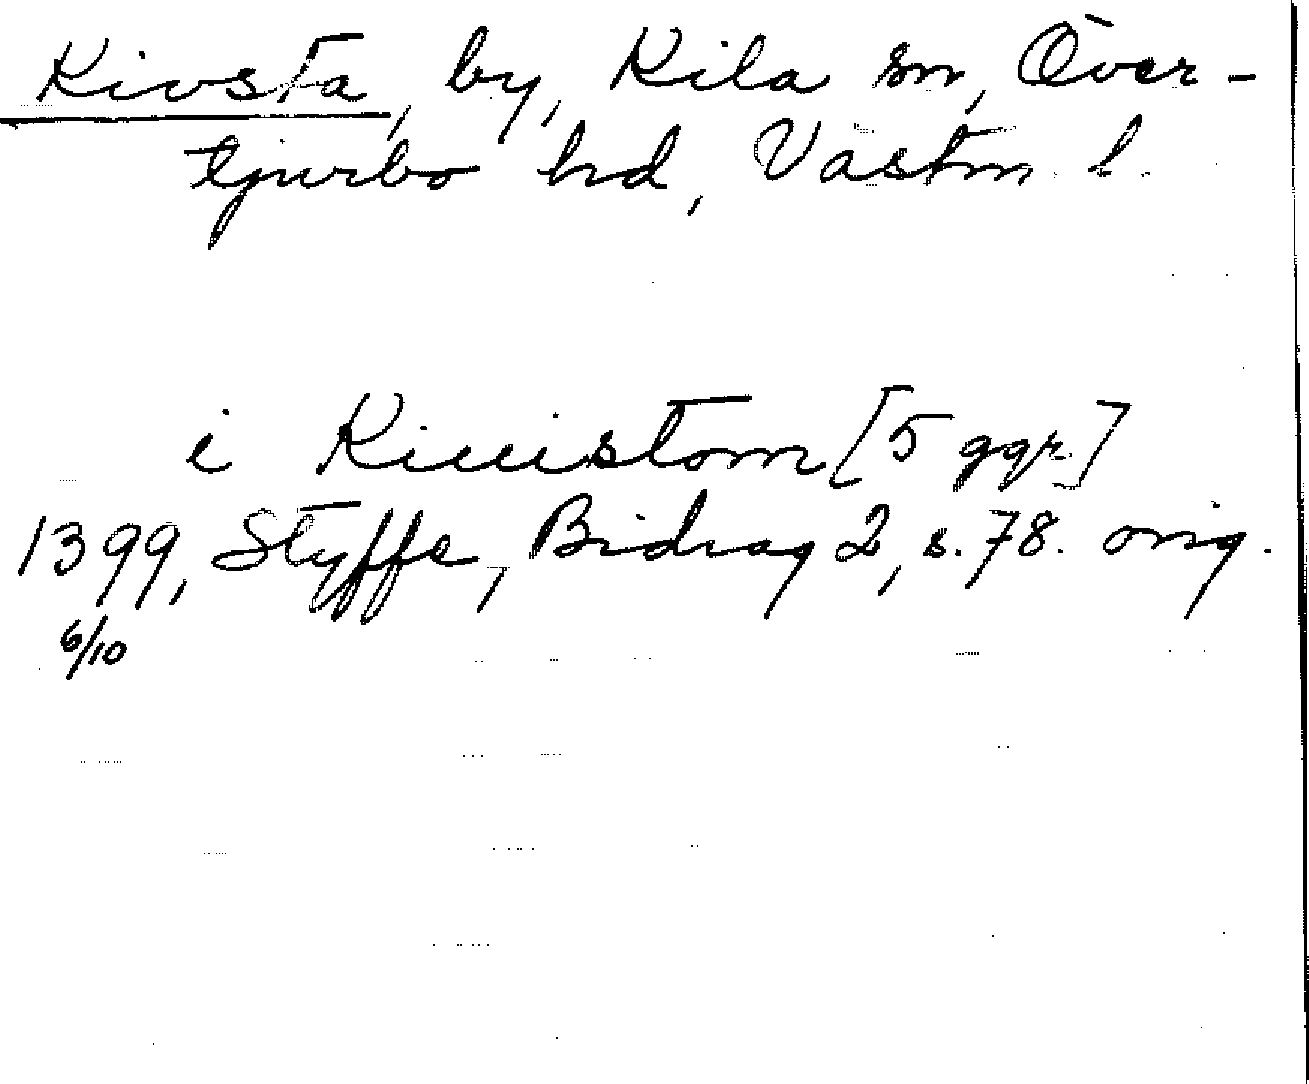 Kivsta, by, Kila sn, Över-
tjurbo hd, Västm. l.
i Kiuistom [5 ggr.]
1399, Styffe, Bidrag 2, s. 78. orig.
6/10